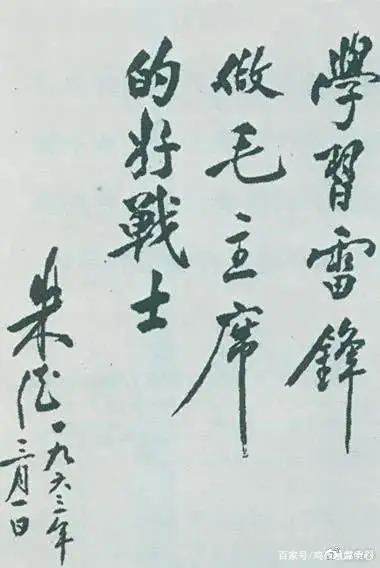 學習雷鋒
做毛主席
的好戰士
朱德
一九六三年
三月一日
百家号/